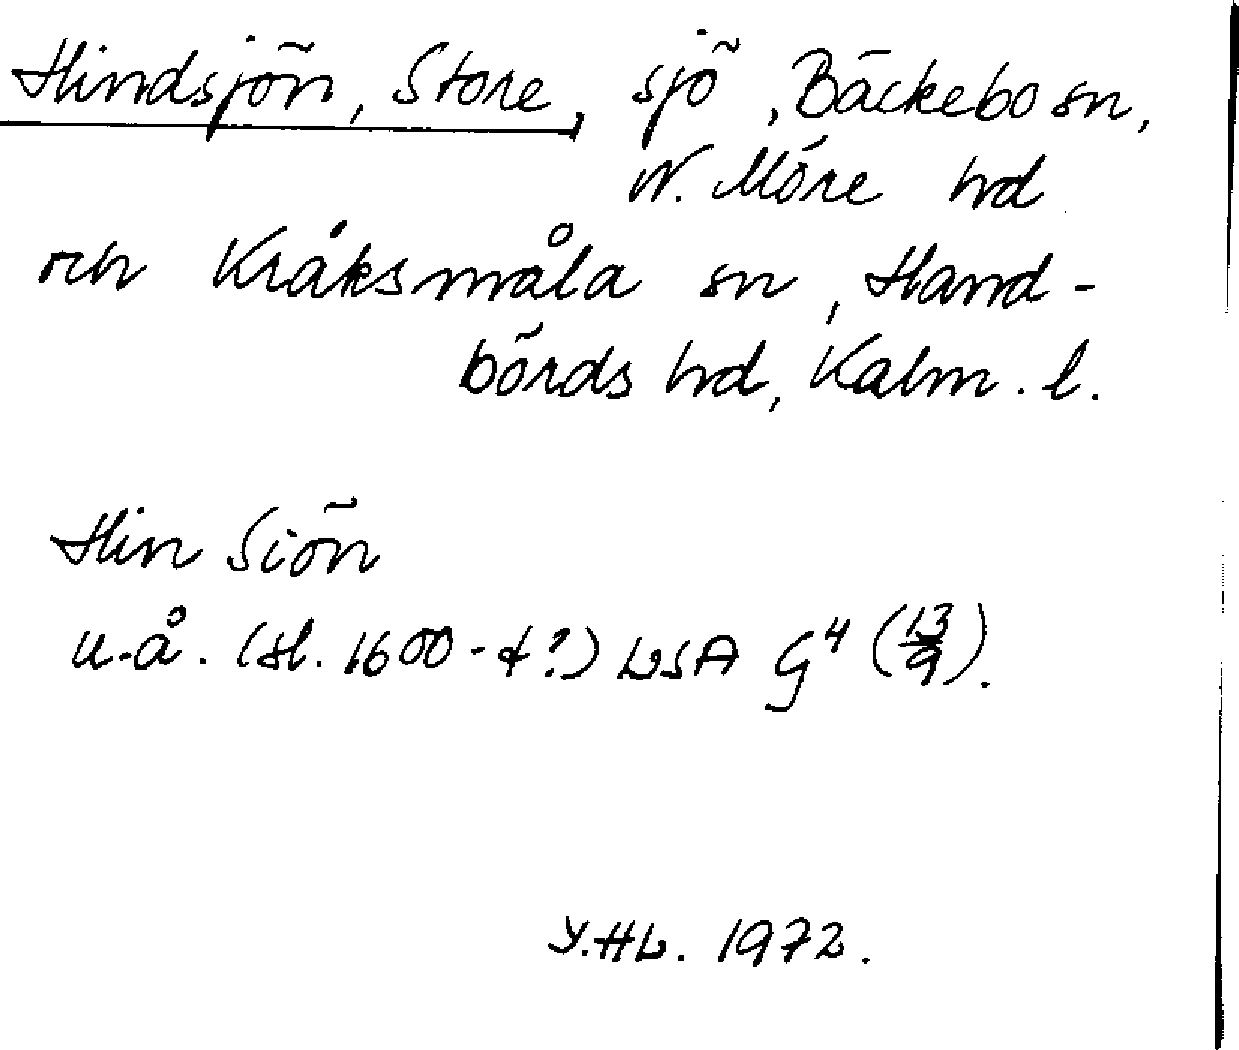 Hindsjön, Store, sjö, Bäckebo sn,
N. Möre hd
och Kråksmåla sn, Hand-
börds hd, Kalm. l.
Hin Siön
u.å. (sl. 1600-t?) LSA G⁴ (13/9).
Y.HL. 1972.